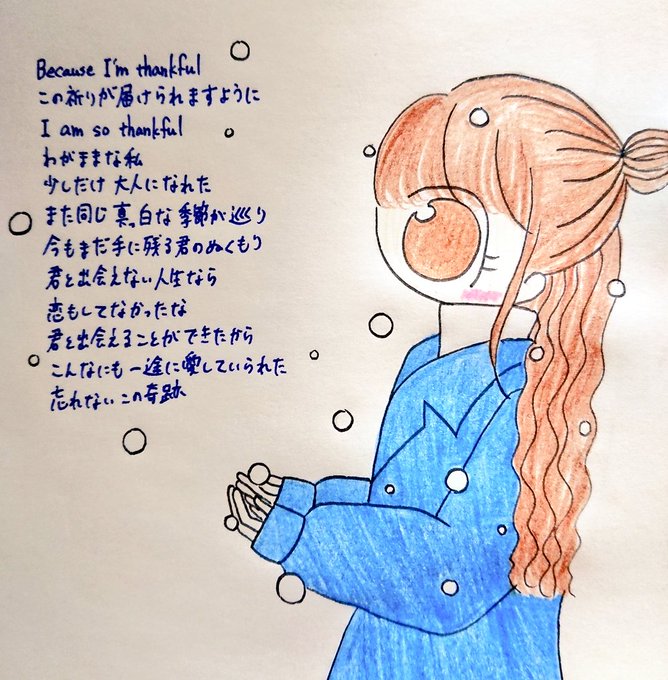 Because I'm thankful
この祈りが届けられますように
I am so thankful
わがままな私
少しだけ大人になれた
また同じ真っ白な季節が巡り
今もまだ手に残る君のぬくもり
君と出会えない人生なら
恋もしてなかったな
君と出会えることができたから
こんなにも一途に愛していられた
忘れないこの奇跡